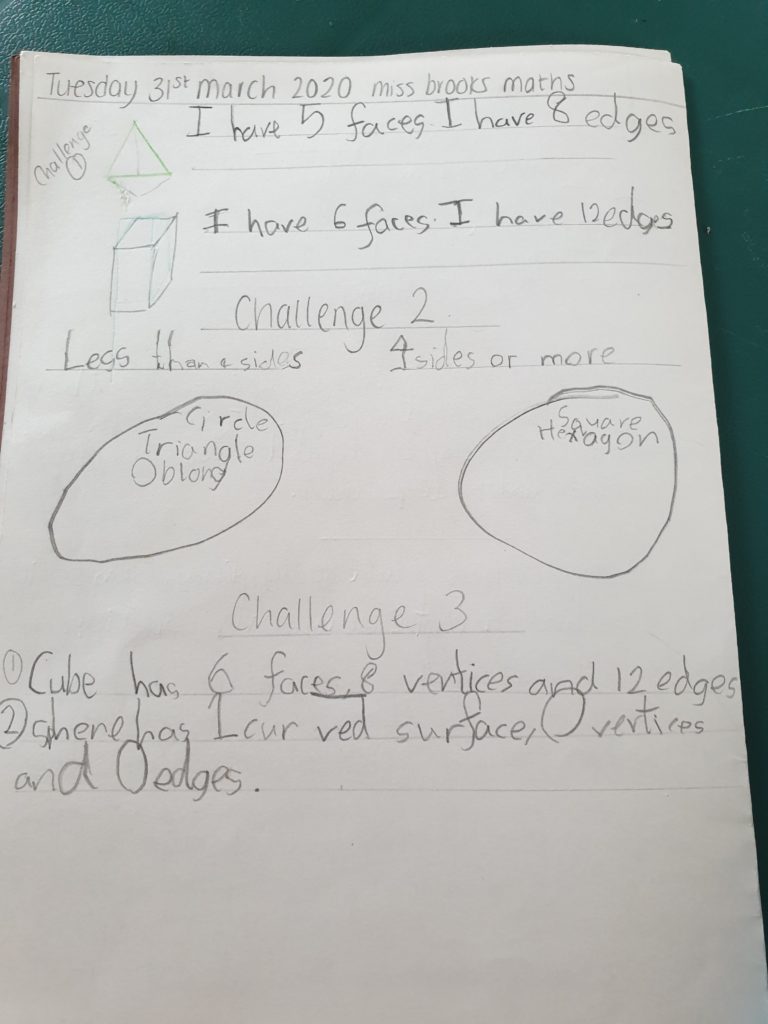 Tuesday 31st march 2020 miss brooks maths
Challenge
1
I have 5 faces. I have 8 edges
I have 6 faces. I have 12 edges
Challenge 2
Less than 4 sides
4 sides or more
Circle
Triangle
Oblong
Square
Hexagon
Challenge 3
① Cube has 6 faces, 8 vertices and 12 edges
② sphere has 1 cur ved surface, 0 vertices
and 0 edges.